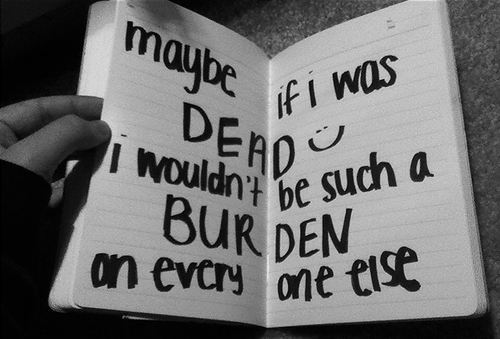 maybe if i was
DEAD
i wouldn't be such a
BURDEN
on every one else